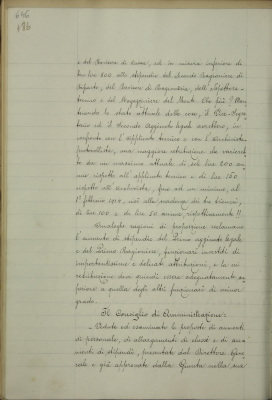 636
486
e del Direttore di Roma, ed in misura inferiore di
tre lire 500 allo stipendio del Secondo Ragioniere di
del Magazziniere del Monte. Che più! Man-
tenendo lo stato attuale delle cose, il Vice-Segre-
tario ed il secondo Aggiunto legale avrebbero, in
confronto con l'applicato tecnico e con l'archivista
protocollista, una maggiore retribuzione che varierebbe
da un massimo attuale di sole lire 200 an-
nue rispetto all'applicato tecnico e di lire 150
rispetto all'archivista, fino ad un minimo, al
1° febbraio 1914, cioè alla scadenza dei due bienni,
di lire 100 e di lire 50 annue, rispettivamente!!
Analoghe ragioni di proporzione reclamano
l'aumento di stipendio del Primo aggiunto legale
e del Primo Ragioniere, funzionari investiti di
importantissime e delicate attribuzioni, e la cui
retribuzione deve quindi essere adeguatamente su-
periore a quella degli altri funzionari di minor
grado.
Il Consiglio di Amministrazione:
Vedute ed esaminate le proposte di aumenti
di personale, di allargamenti di classi e di au-
menti di stipendi, presentate dal Direttore Gene-
rale e già approvate dalla Giunta nella sua